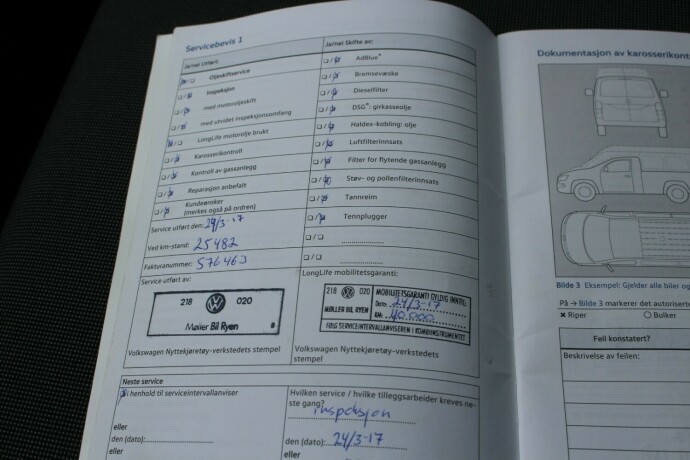 Servicebevis 1
Ja/nei Utført:
Ja/nei Skifte av:
Oljeskiftservice
AdBlue®
Inspeksjon
Bremsevæske
med motoroljeskift
Dieselfilter
med utvidet inspeksjonsomfang
DSG®: girkasseolje
LongLife motorolje brukt
Haldex-kobling: olje
Karosserikontroll
Luftfilterinnsats
Kontroll av gassanlegg
Filter for flytende gassanlegg
Reparasjon anbefalt
Støv- og pollenfilterinnsats
Kundeønsker
(merkes også på ordren)
Tannreim
Tennplugger
Service utført den: 24/3-17
Ved km-stand: 25482
Fakturanummer: 576463
Service utført av:
LongLife mobilitetsgaranti:
218 020
Møller Bil Ryen
218 020
MØLLER BIL RYEN
MOBILITETSGARANTI GYLDIG INNTIL:
Dato: 24/3-17
KM: 40.000
FØLG SERVICEINTERVALLANVISEREN I KOMBIINSTRUMENTET
Volkswagen Nyttekjøretøy-verkstedets
stempel
Volkswagen Nyttekjøretøy-verkstedets
stempel
Neste service
I henhold til serviceintervallanviser
eller
den (dato):
eller
Hvilken service / hvilke tilleggsarbeider kreves ne-
ste gang?
inspeksjon
den (dato): 24/3-17
eller
Dokumentasjon av karosserikont
Bilde 3 Eksempel: Gjelder alle biler og
På → Bilde 3 markerer det autoriserte
x Riper Bulker
Feil konstatert?
Beskrivelse av feilen: